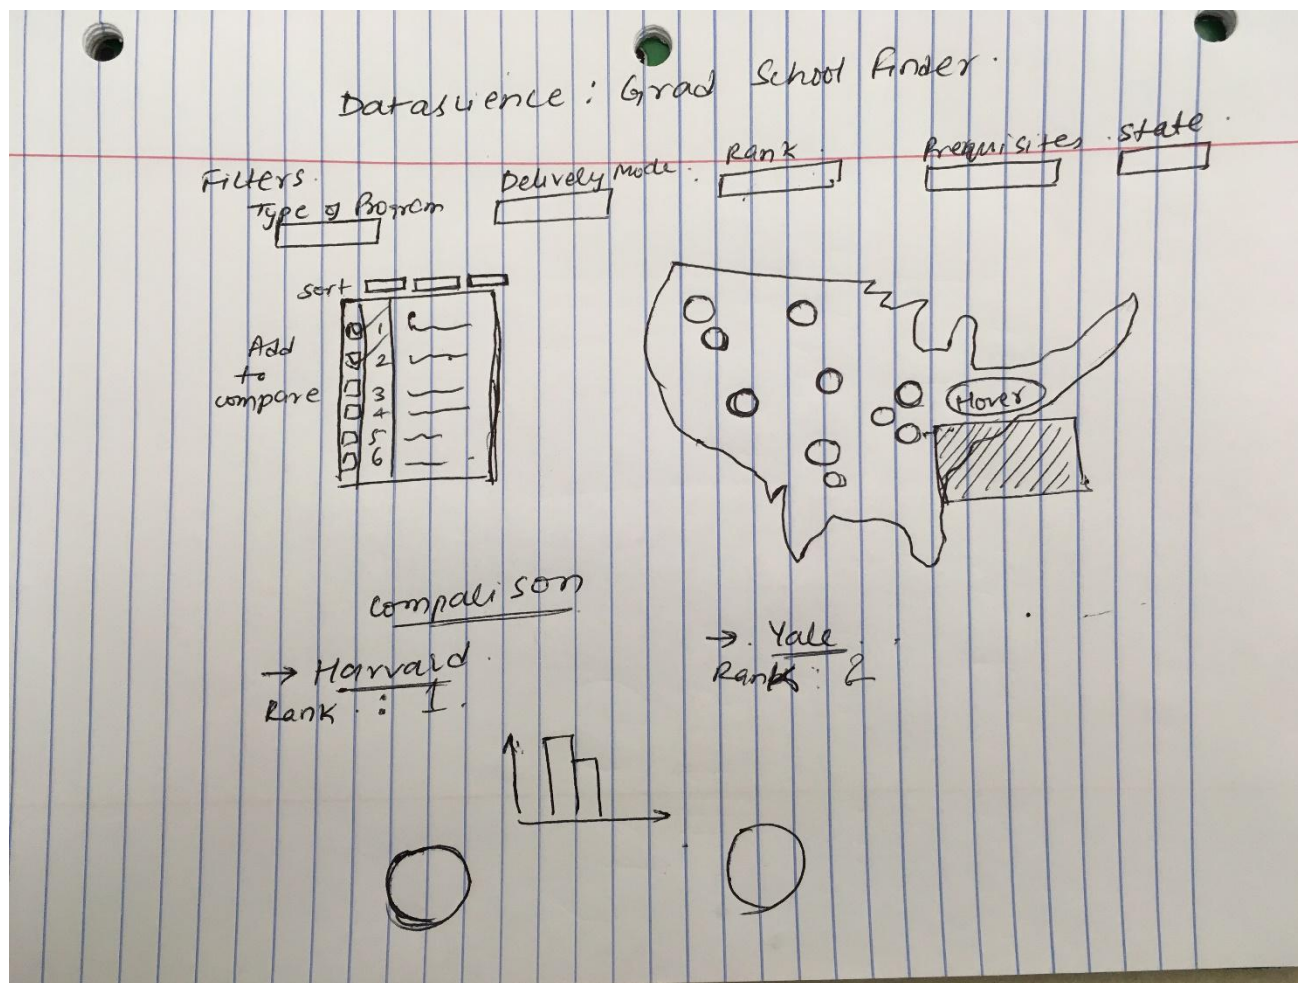 Datasience : Grad School Finder.
Filters.
Type of Program
Delivery Mode:
Rank
Prequisites
State
Sort
Add
to
compare
1
2
3
4
5
6
Hover
Comparison
→ Harvard
Rank : 1.
→ Yale
Rank : 2